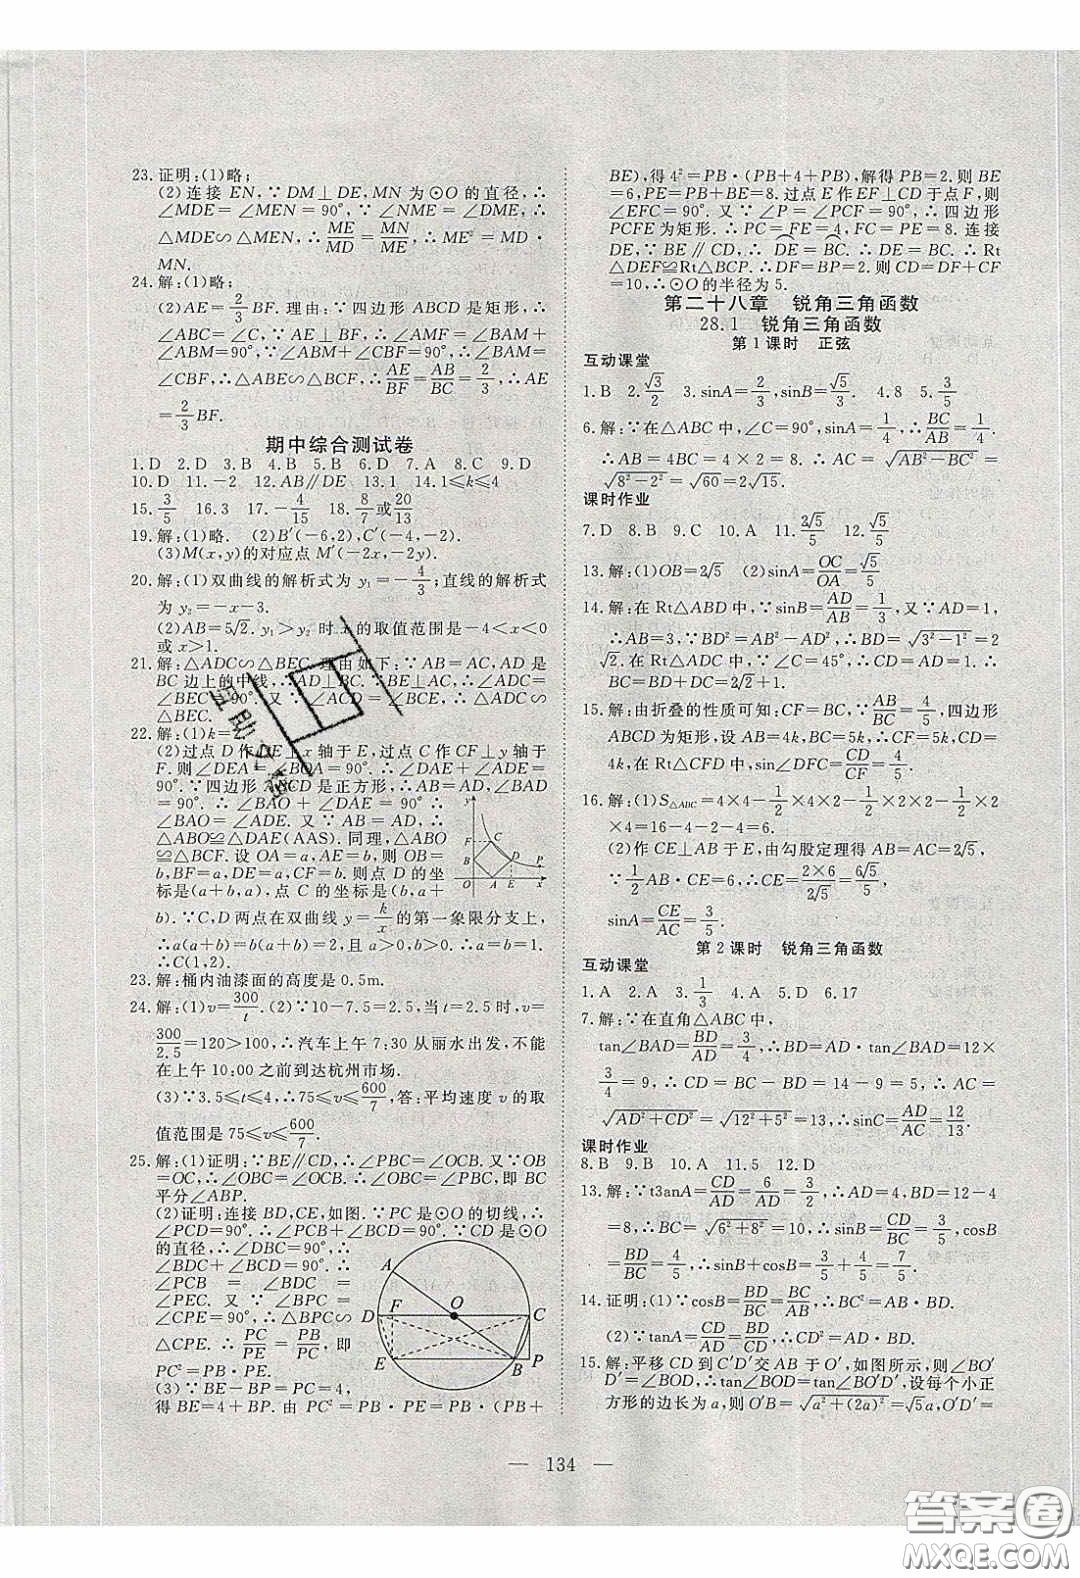 23.证明:(1)略;
(2)连接 EN,∵DM⊥DE,MN为⊙O的直径,∴
∠MDE=∠MEN=90°,∵∠NME=∠DME,∴
△MDE∽△MEN,∴ME/MD=MN/ME,∴ME²=MD·
MN.
24.解:(1)略;
(2)AE=2/3BF. 理由:∵四边形 ABCD是矩形,∴
∠ABC=∠C=90°,∴∠AMF=∠BAM+
∠ABM=90°,∠CBF+∠ABM=90°,∴∠BAM=
∠CBF,∴△ABE∽△BCF,∴AE/BF=AB/BC=2/3,∴AE
=2/3BF.
期中综合测试卷
1.D 2.D 3.B 4.B 5.B 6.D 7.A 8.C 9.D
10.D 11.-2 12.AB∥DE 13.1 14.1≤k≤4
15.3/5 16.3 17.-4/15 18.8/7或20/13
19.解:(1)略. (2)B′(-6,2),C′(-4,-2).
(3)M(x,y)的对应点 M′(-2x,-2y).
20.解:(1)双曲线的解析式为 y₁=-4/3;直线的解析式
为 y₂=-x-3.
(2)AB=5√2. y₁>y₂ 时 x的取值范围是-4<x<0
或 x>1.
21.解:△ADC∽△BEC. 理由如下:∵AB=AC,AD是
BC边上的中线,∴AD⊥BC.∵BE⊥AC,∴∠ADC=
∠BEC=90°. 又∵∠ACD=∠BCE,∴△ADC∽
△BEC.
22.解:(1)k=
(2)过点 D作 DE⊥x轴于 E,过点 C作 CF⊥y轴于
F. 则∠DEA=∠BOA=90°,∴∠ADE+∠DAE=
90°.∵四边形 ABCD是正方形,∴AB=AD,∠BAD
=90°,∴∠BAO+∠DAE=90°,∴∠BAO
=∠ADE. 又∵AB=AD,∴
△ABO≌△DAE(AAS). 同理,△ABO
≌△BCF. 设 OA=a,AE=b,则 OB=
b,BF=a,DE=a,CF=b. 则点 D的坐
标是(a+b,a). 点 C的坐标是(b,a+
b).∵C,D两点在双曲线 y=k/x的第一象限分支上,
∴a(a+b)=b(a+b)=2,且 a>0,b>0.∴a=b=1.
∴C(1,2).
y F C B D P O A E x
23.解:桶内油漆面的高度是 0.5m.
24.解:(1)v=300/t. (2)∵10-7.5=2.5,当 t=2.5时,v=
300/2.5=120>100,∴汽车上午 7:30从丽水出发,不能
在上午 10:00之前到达杭州市场.
(3)∵3.5≤t≤4,∴75≤v≤600/7,答:平均速度 v的取
值范围是 75≤v≤600/7.
25.解:(1)证明:∵BE∥CD,∴∠PBC=∠OCB. 又∵OB
=OC,∴∠OBC=∠OCB.∴∠PBC=∠OBC,即 BC
平分∠ABP.
(2)证明:连接 BD,CE,如图.∵PC是⊙O的切线,∴
∠PCD=90°.∴∠PCB+∠BCD=90°.∵CD是⊙O
的直径,∴∠DBC=90°,∴
∠BDC+∠BCD=90°,∴
∠PCB=∠BDC=
∠PEC. 又∵∠BPC=
∠CPE=90°,∴△BPC∽
△CPE.∴PC/PE=PB/PC,即
PC²=PB·PE.
A F O D C E B P
(3)∵BE-BP=PC=4,
得 BE=4+BP. 由 PC²=PB·PE=PB·(PB+
BE),得 4²=PB·(PB+4+PB),解得 PB=2. 则 BE
=6,PE=PB+BE=8. 过点 E作 EF⊥CD于点 F,则
∠EFC=90°. 又∵∠P=∠PCF=90°,∴四边形
PCFE为矩形.∴PC=FE=4,FC=PE=8. 连接
DE,∵BE∥CD,∴DE=BC.∴DE=BC.∴Rt
△DEF≌Rt△BCP.∴DF=BP=2. 则 CD=DF+CF
=10,∴⊙O的半径为 5.
第二十八章 锐角三角函数
28.1 锐角三角函数
第1课时 正弦
互动课堂
1.B 2.√3/2 3.sinA=2/3,sinB=√5/3. 4.8 5.3/5
6.解:∵在△ABC中,∠C=90°,sinA=1/4,∴BC/AB=1/4.
∴AB=4BC=4×2=8. ∴AC=√(AB²-BC²)=
√(8²-2²)=√60=2√15.
课时作业
7.D 8.B 9.C 10.A 11.2√5/5 12.√5/5
13.解:(1)OB=2√5 (2)sinA=OC/OA=√5/5
14.解:在 Rt△ABD中,∵sinB=AD/AB=1/3,又∵AD=1,
∴AB=3.∵BD²=AB²-AD²,∴BD=√(3²-1²)=2
√2. 在 Rt△ADC中,∵∠C=45°,∴CD=AD=1.
∴BC=BD+CD=2√2+1.
15.解:由折叠的性质可知:CF=BC,∵AB/BC=4/5,四边形
ABCD为矩形,设 AB=4k,BC=5k,∴CD=4k,CF=
5k,∴在 Rt△CFD中,∴sin∠DFC=CD/CF=4/5.
16.解:(1)S△ABC=4×4-1/2×4×2-1/2×2×2-1/2×2
×4=16-4-2-4=6.
(2)作 CE⊥AB于 E,由勾股定理得 AB=AC=2√5,
∵1/2AB·CE=6,∴CE=2×6/2√5=6√5/5,
sinA=CE/AC=3/5.
第2课时 锐角三角函数
互动课堂
1.A 2.A 3.1/3 4.A 5.D 6.17
7.解:∵在直角△ABC中,
tan∠BAD=BD/AD=3/4,∴BD=AD·tan∠BAD=12×
3/4=9,∴CD=BC-BD=14-9=5,∴AC=
√(AD²+CD²)=√(12²+5²)=13,∴sinC=AD/AC=12/13.
课时作业
8.B 9.B 10.A 11.5 12.D
13.解:∵t3anA=CD/AD=6/AD=3/2,∴AD=4,∴BD=12-4
=8,∴BC=√(6²+8²)=10,∴sinB=CD/BC=3/5,cosB
=BD/BC=4/5,∴sinB+cosB=3/5+4/5=7/5.
14.证明:(1)∵cosB=BD/BC=BC/AB,∴BC²=AB·BD.
(2)∵tanA=CD/AD=BD/CD,∴CD²=AD·BD.
15.解:平移 CD到 C′D′交 AB于 O′,如图所示,则∠BO′
D′=∠BOD,∴tan∠BOD=tan∠BO′D′,设每个小正
方形的边长为 a,则 O′B=√(a²+(2a)²)=√5a,O′D′=
— 134 —
答案圈
MXQE.COM